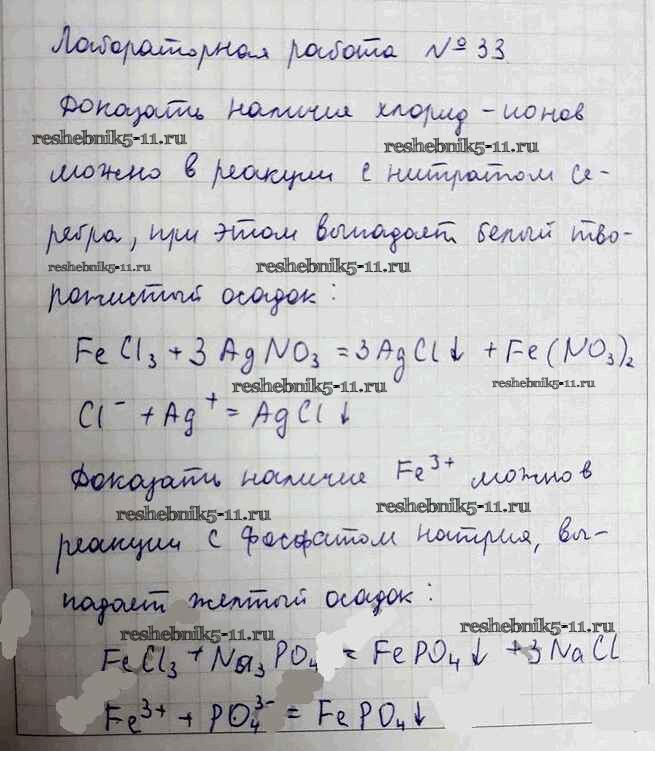 Лабораторная работа №33
Доказать наличия хлорид-ионов
reshebnik5-11.ru reshebnik5-11.ru
можно в реакции с нитратом се-
ребра, при этом выпадает белый тво-
reshebnik5-11.ru reshebnik5-11.ru
рожистый осадок:
FeCl₃ + 3AgNO₃ = 3AgCl↓ + Fe(NO₃)₂
reshebnik5-11.ru reshebnik5-11.ru
Cl⁻ + Ag⁺ = AgCl↓
Доказать наличие Fe³⁺ можно в
reshebnik5-11.ru reshebnik5-11.ru
реакции с фосфатом натрия, вы-
падает желтый осадок:
reshebnik5-11.ru reshebnik5-11.ru
FeCl₃ + Na₃PO₄ = FePO₄↓ + 3NaCl
Fe³⁺ + PO₄³⁻ = FePO₄↓